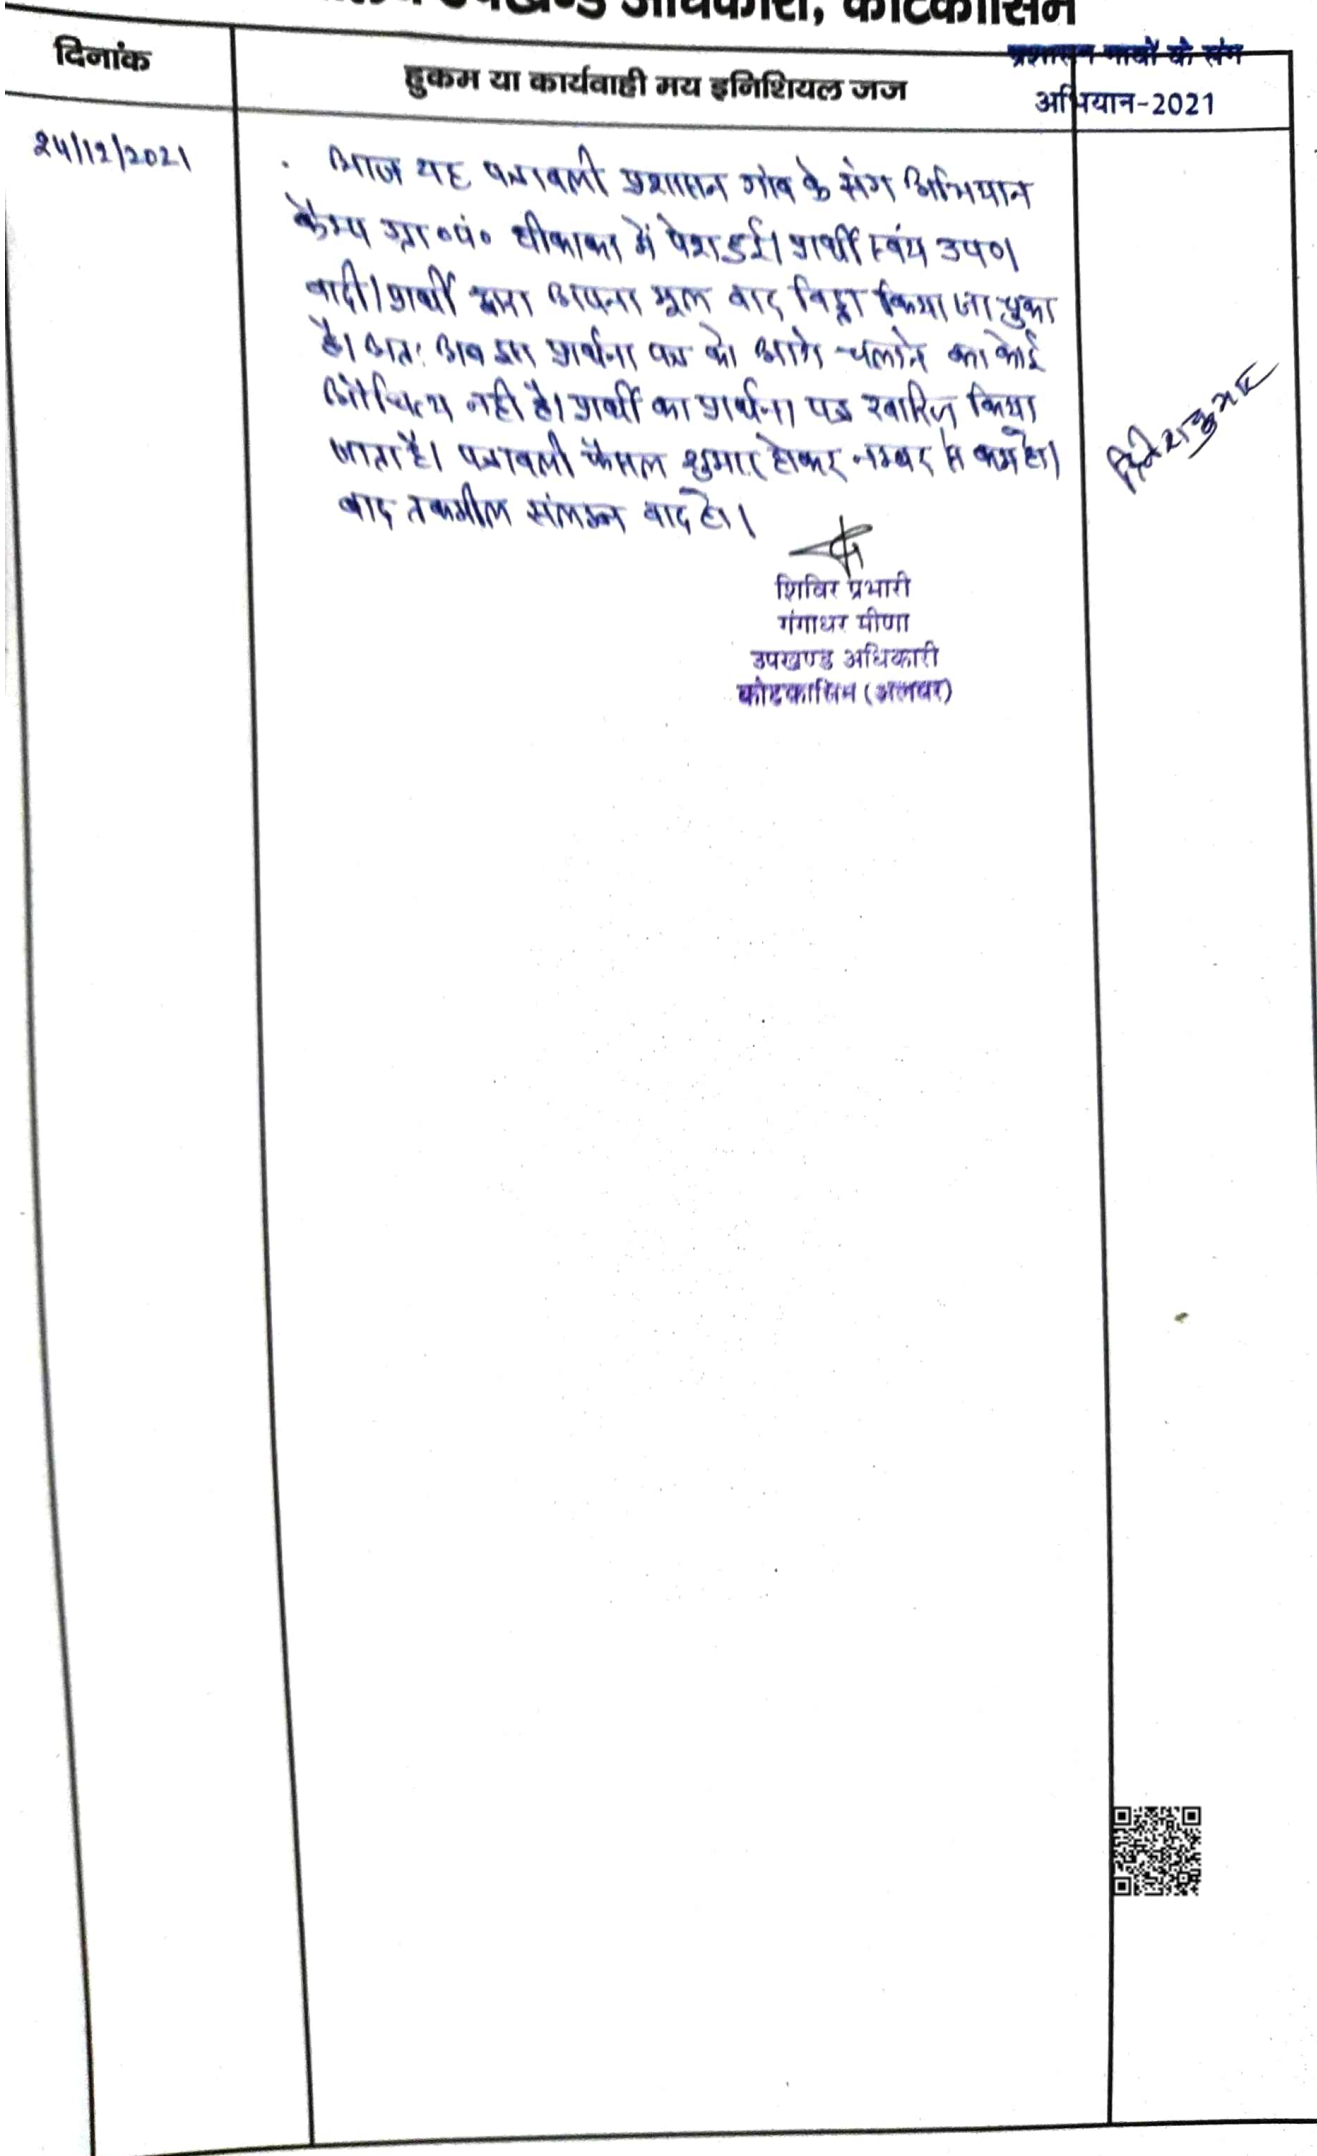 उपखण्ड अधिकारी, कोटकासिम
दिनांक
हुकम या कार्यवाही मय इनिशियल जज
प्रशासन गावों के संग
अभियान-2021
24/12/2021
आज यह पत्रावली प्रशासन गांव के संग अभियान
कैम्प ग्रा०पं० बीकाका में पेश हुई। प्रार्थी स्वंय उप०।
वादी/प्रार्थी द्वारा अपना मूल वाद विड्रा किया जा चुका
है। अतः अब इस प्रार्थना पत्र को आगे चलाने का कोई
औचित्य नही है। प्रार्थी का प्रार्थना पत्र खारिज किया
जाता है। पत्रावली फैसल शुमार होकर नम्बर से कम हो।
बाद तकमील संलग्न वाद हो।
शिविर प्रभारी
गंगाधर मीणा
उपखण्ड अधिकारी
कोटकासिम (अलवर)